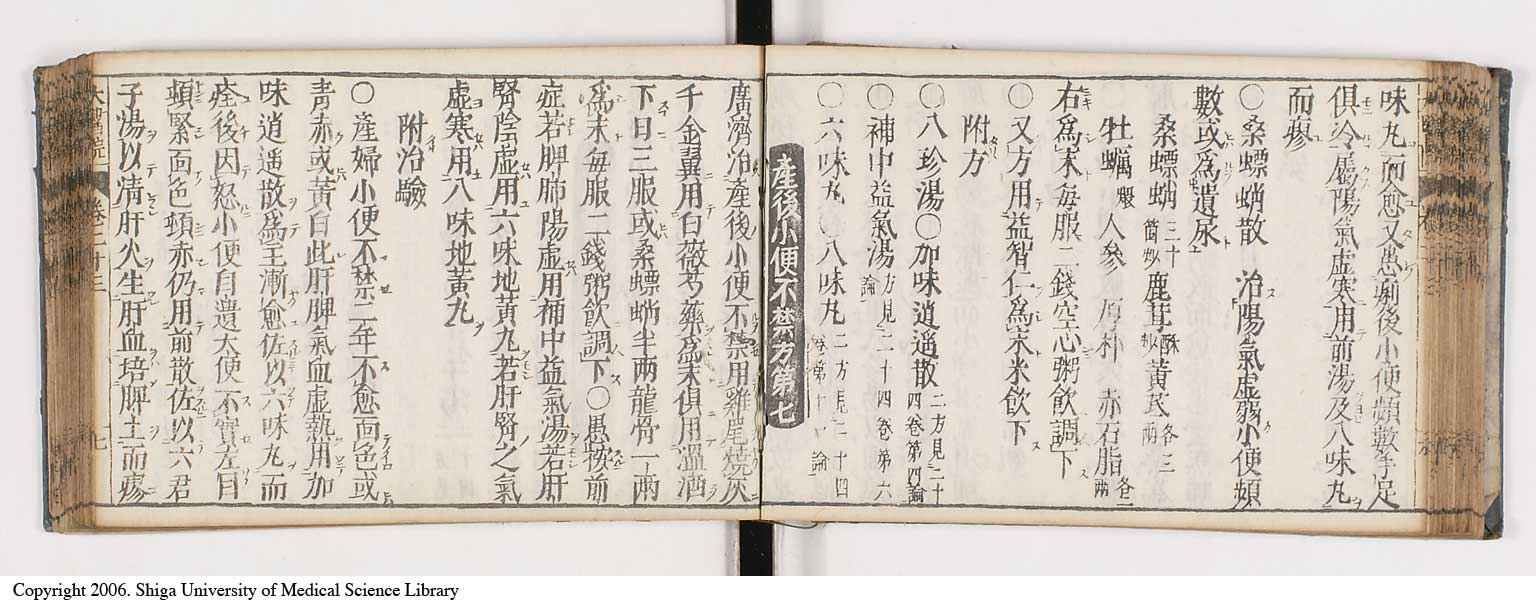 味丸而愈又患痢後小便頻數手足
俱冷屬陽氣虚寒用前湯及八味丸
而瘳
○桑螵蛸散 治陽氣虚弱小便頻
數或爲遺尿
桑螵蛸三十箇炒鹿茸酥炒黃芪各三兩
牡蠣煅人參 厚朴 赤石脂各二兩
右爲末毎服二錢空心粥飲調下
○又方用益智仁爲末米飲下
附方
○八珍湯○加味逍遥散二方見二十四卷第四論
○補中益氣湯方見二十四卷第六論
○六味丸○八味丸二方見二十四卷第十一論
產後小便不禁方第七
廣濟治產後小便不禁用雞尾燒灰
千金翼用白薇芍藥爲末俱用溫酒
下日三服或桑螵蛸半兩龍骨一兩
爲末毎服二錢粥飲調下○愚按前
症若脾肺陽虚用補中益氣湯若肝
腎陰虚用六味地黃丸若肝腎之氣
虚寒用八味地黃丸
附治驗
○產婦小便不禁二年不愈面色或
青赤或黃白此肝脾氣血虚熱用加
味逍遥散爲主漸愈佐以六味丸而
痊後因怒小便自遺大便不實左目
頓緊面色頓赤仍用前散佐以六君
子湯以清肝火生肝血培脾土而瘳
Copyright 2006. Shiga University of Medical Science Library